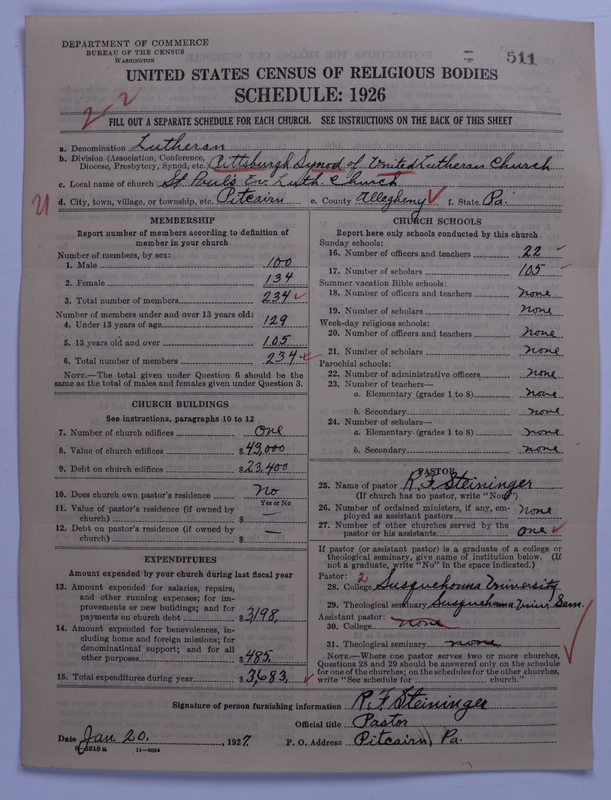 DEPARTMENT OF COMMERCE
BUREAU OF THE CENSUS
WASHINGTON
511
UNITED STATES CENSUS OF RELIGIOUS BODIES
SCHEDULE: 1926
2-2
FILL OUT A SEPARATE SCHEDULE FOR EACH CHURCH. SEE INSTRUCTIONS ON THE BACK OF THIS SHEET
a. Denomination Lutheran
b. Division (Association, Conference,
Diocese, Presbytery, Synod, etc.) Pittsburgh Synod of United Lutheran Church
c. Local name of church St. Paul's Ev. Luth. Church
d. City, town, village, or township, etc. Pitcairn e. County Allegheny f. State Pa.
MEMBERSHIP
Report number of members according to definition of
member in your church
Number of members, by sex:
1. Male 100
2. Female 134
3. Total number of members 234
Number of members under and over 13 years old:
4. Under 13 years of age 129
5. 13 years old and over 105
6. Total number of members 234
NOTE.—The total given under Question 6 should be the
same as the total of males and females given under Question 3.
CHURCH BUILDINGS
See instructions, paragraphs 10 to 12
7. Number of church edifices One
8. Value of church edifices $ 43,000
9. Debt on church edifices $ 23,400
10. Does church own pastor's residence No
Yes or No
11. Value of pastor's residence (if owned by
church) $ —
12. Debt on pastor's residence (if owned by
church) $ —
EXPENDITURES
Amount expended by your church during last fiscal year
13. Amount expended for salaries, repairs,
and other running expenses; for im-
provements or new buildings; and for
payments on church debt $ 3,198.
14. Amount expended for benevolences, in-
cluding home and foreign missions; for
denominational support; and for all
other purposes $ 485.
15. Total expenditures during year $ 3,683.
CHURCH SCHOOLS
Report here only schools conducted by this church
Sunday schools:
16. Number of officers and teachers 22
17. Number of scholars 105
Summer vacation Bible schools:
18. Number of officers and teachers none
19. Number of scholars none
Week-day religious schools:
20. Number of officers and teachers none
21. Number of scholars none
Parochial schools:
22. Number of administrative officers none
23. Number of teachers—
a. Elementary (grades 1 to 8) none
b. Secondary none
24. Number of scholars—
a. Elementary (grades 1 to 8) none
b. Secondary none
PASTOR
25. Name of pastor R. F. Steininger
(If church has no pastor, write "None")
26. Number of ordained ministers, if any, em-
ployed as assistant pastors none
27. Number of other churches served by the
pastor or his assistants one
If pastor (or assistant pastor) is a graduate of a college or
theological seminary, give name of institution below. (If
not a graduate, write "No" in the space indicated.)
Pastor: 2
28. College Susquehanna University
29. Theological seminary Susquehanna Univ. Sem.
Assistant pastor:
30. College none
31. Theological seminary none
NOTE.—Where one pastor serves two or more churches,
Questions 28 and 29 should be answered only on the schedule
for one of the churches; on the schedules for the other churches,
write "See schedule for church."
Signature of person furnishing information R. F. Steininger
Official title Pastor
Date Jan. 20, 1927. P. O. Address Pitcairn, Pa.
8 5518a 11-9064